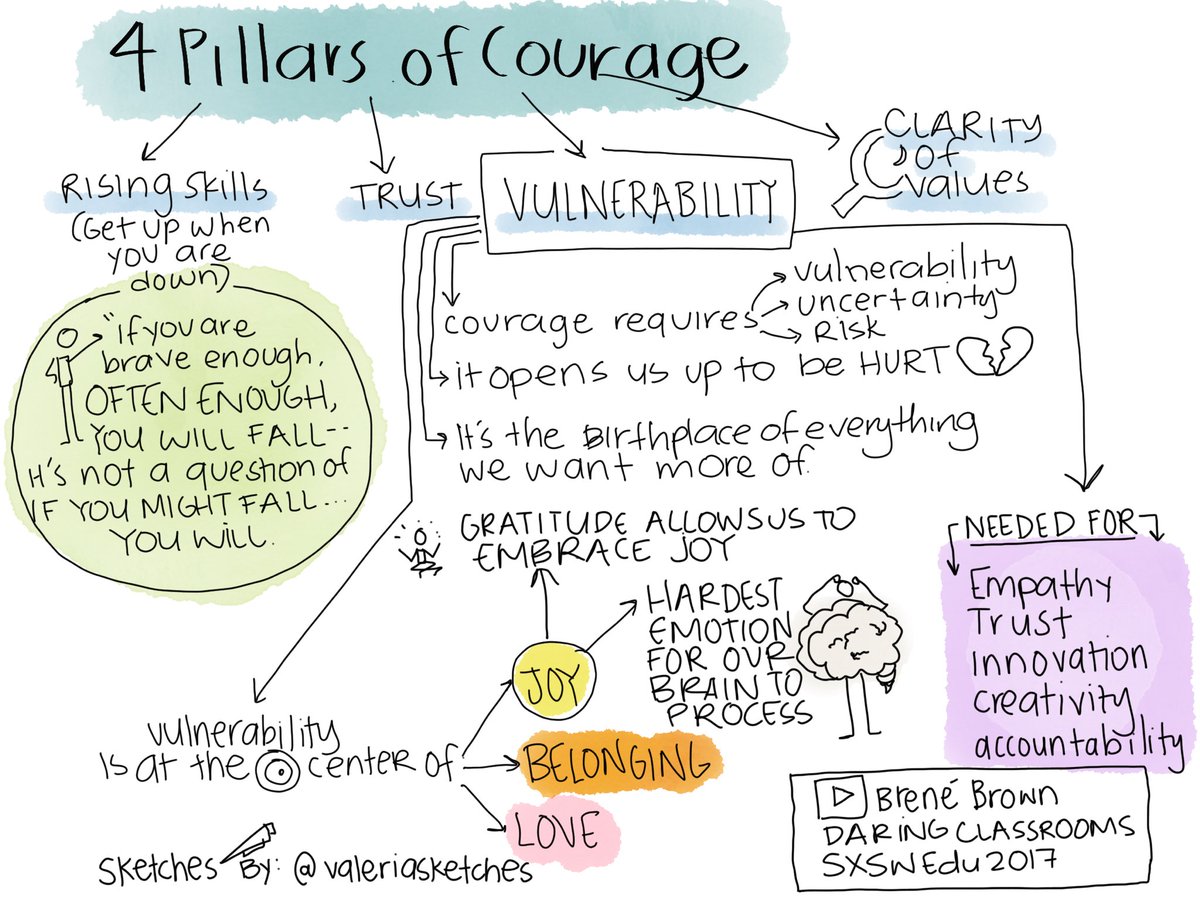 4 Pillars of Courage
Rising Skills
(Get up when
you are
down)
"if you are
brave enough,
OFTEN ENOUGH,
YOU WILL FALL--
it's not a question of
IF YOU MIGHT FALL...
YOU WILL.
TRUST
VULNERABILITY
CLARITY
of
values
courage requires
vulnerability
uncertainty
Risk
it opens us up to be HURT
It's the Birthplace of everything
we want more of.
GRATITUDE ALLOWS US TO
EMBRACE JOY
HARDEST
EMOTION
FOR OUR
BRAIN TO
PROCESS
JOY
vulnerability
is at the center of
BELONGING
LOVE
NEEDED FOR
Empathy
Trust
innovation
creativity
accountability
Brené Brown
DARING CLASSROOMS
SXSWEdu 2017
Sketches By: @valeriasketches